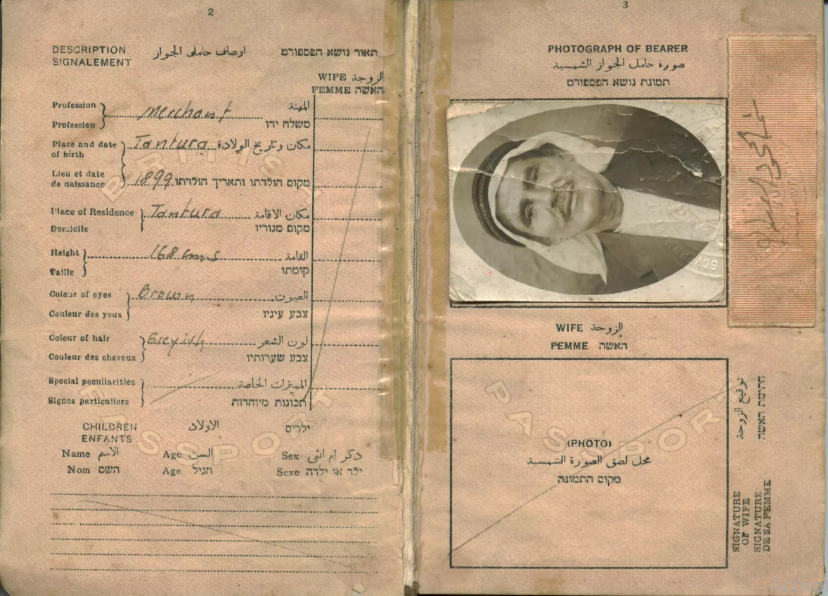 2
DESCRIPTION اوصاف حامل الجواز תאור נושא הפספורט
SIGNALEMENT
WIFE الزوجة
FEMME האשה
Profession Merchant المهنة
Profession משלח ידו
Place and date of birth Tantura مكان وتاريخ الولادة
Lieu et date de naissance 1899 מקום הולדתו ותאריך הולדתו
Place of Residence Tantura مكان الاقامة
Domicile מקום מגוריו
Height 168 cms القامة
Taille קומתו
Colour of eyes Brown العيون
Couleur des yeux צבע עיניו
Colour of hair Greyish لون الشعر
Couleur des cheveux צבע שערותיו
Special peculiarities المميزات الخاصة
Signes particuliers תכונות מיוחדות
CHILDREN الاولاد ילדים
ENFANTS
Name الاسم Age السن Sex ذكر ام انثى
Nom השם Age הגיל Sexe ילד או ילדה
BRITISH
PASSPORT
3
PHOTOGRAPH OF BEARER
صورة حامل الجواز الشمسية
תמונת נושא הפספורט
WIFE الزوجة
FEMME האשה
(PHOTO)
محل لصق الصورة الشمسية
מקום התמונה
PASSPORT
توقيع الزوجة
חתימת האשה
SIGNATURE
OF WIFE
SIGNATURE
DE SA FEMME